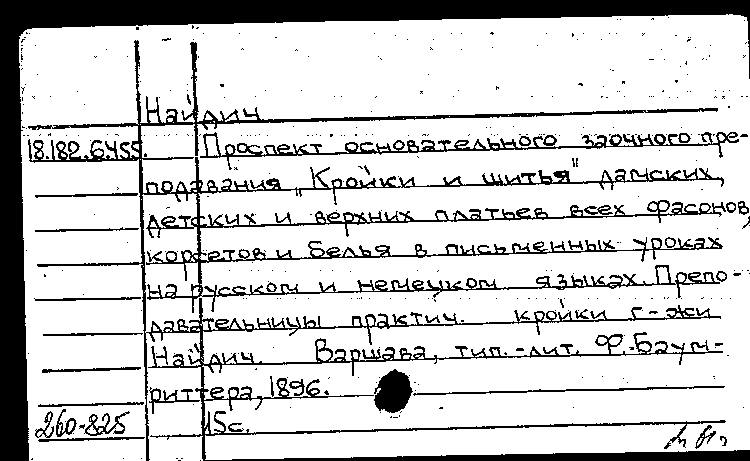 Найдич
18.182.6.455. Проспект основательного заочного пре-
подавания „Кройки и шитья" дамских,
детских и верхних платьев всех фасонов,
корсетов и белья в письменных уроках
на русском и немецком языках. Препо-
давательницы практич. кройки г-жи
Найдич. Варшава, тип.-лит. Ф. Баум-
риттера, 1896.
260-825 15с.